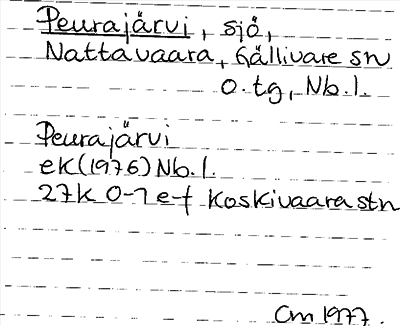 Peurajärvi, sjö,
Nattavaara, Gällivare sn
O.tg, Nb.l.
Peurajärvi
ek(1976)Nb.l.
27K 0-1 e-f Koskivaara stn
Cm 1977.